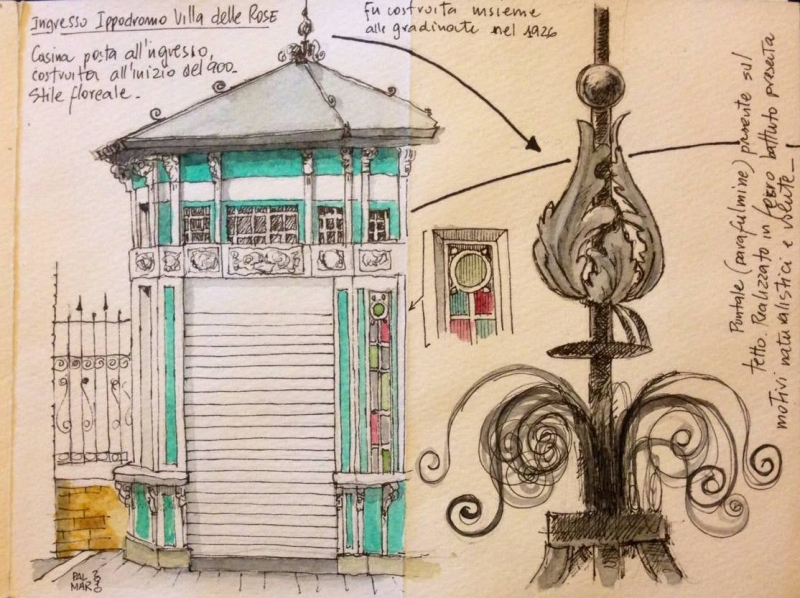 Ingresso Ippodromo Villa delle Rose
Casina posta all'ingresso,
costruita all'inizio del 900-
Stile floreale-
Fu costruita insieme
alle gradinate nel 1926
Puntale (parafulmine) presente sul
tetto. Realizzato in ferro battuto presenta
motivi naturalistici e volute-
PAL
MAR